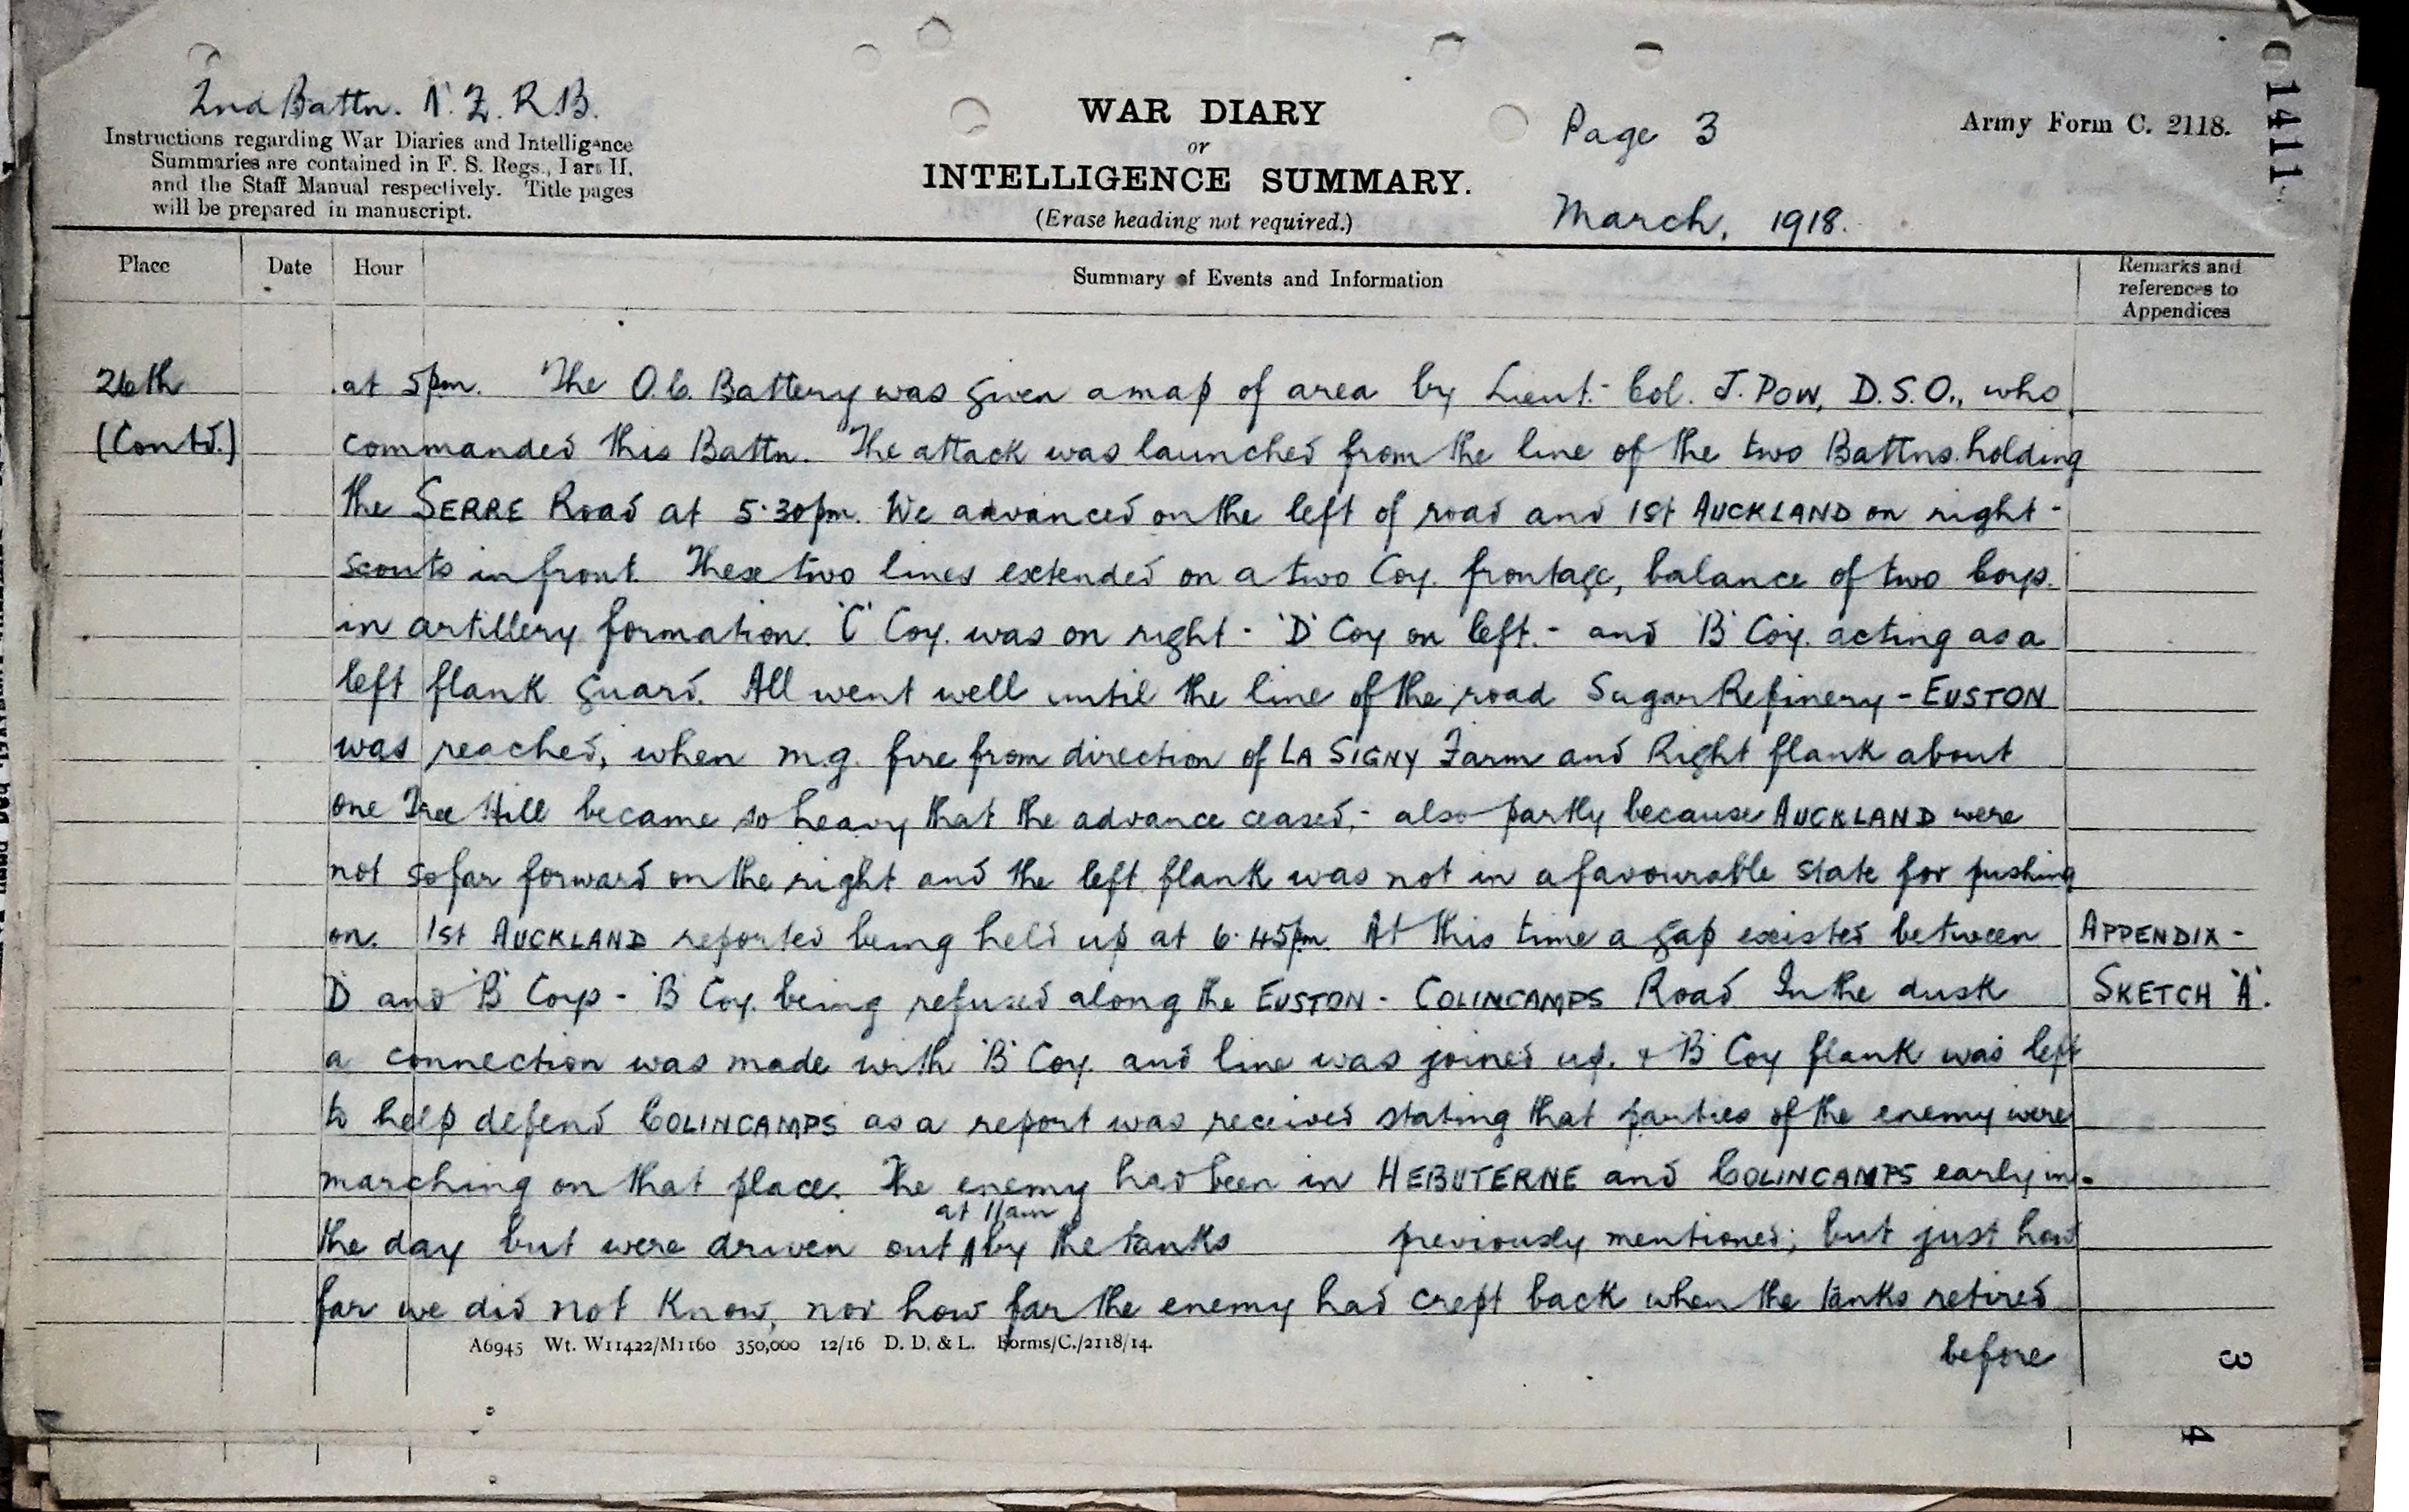 2nd Battn. N.Z.R.B.
Instructions regarding War Diaries and Intelligence
Summaries are contained in F. S. Regs., Part II.
and the Staff Manual respectively. Title pages
will be prepared in manuscript.
WAR DIARY
or
INTELLIGENCE SUMMARY.
(Erase heading not required.)
Page 3
March, 1918.
Army Form C. 2118.
1411
Place
Date
Hour
Summary of Events and Information
Remarks and
references to
Appendices
26th
(Contd.)
at 5pm. The O.C. Battery was given a map of area by Lieut.- Col. J. POW, D.S.O., who
commanded this Battn. The attack was launched from the line of the two Battns. holding
the SERRE Road at 5.30pm. We advanced on the left of road and 1st AUCKLAND on right -
scouts in front. These two lines extended on a two Coy. frontage, balance of two Coys.
in artillery formation. 'C' Coy. was on right - 'D' Coy on left. - and 'B' Coy. acting as a
left flank guard. All went well until the line of the road Sugar Refinery - EUSTON
was reached, when m.g. fire from direction of LA SIGNY Farm and Right flank about
one Tree Hill became so heavy that the advance ceased, - also partly because AUCKLAND were
not so far forward on the right and the left flank was not in a favourable state for pushing
on. 1st AUCKLAND reported being held up at 6.45pm. At this time a gap existed between
'D' and 'B' Coys - 'B' Coy. being refused along the EUSTON - COLINCAMPS Road. In the dusk
a connection was made with 'B' Coy. and line was joined up. & 'B' Coy flank was left
to help defend COLINCAMPS as a report was received stating that parties of the enemy were
marching on that place. The enemy had been in HEBUTERNE and COLINCAMPS early in
at 11am
the day but were driven out by the tanks previously mentioned; but just how
far we did not know, nor how far the enemy had crept back when the tanks retired
before
APPENDIX -
SKETCH 'A'.
A6945 Wt. W11422/M1160 350,000 12/16 D. D. & L. Forms/C./2118/14.
3
4